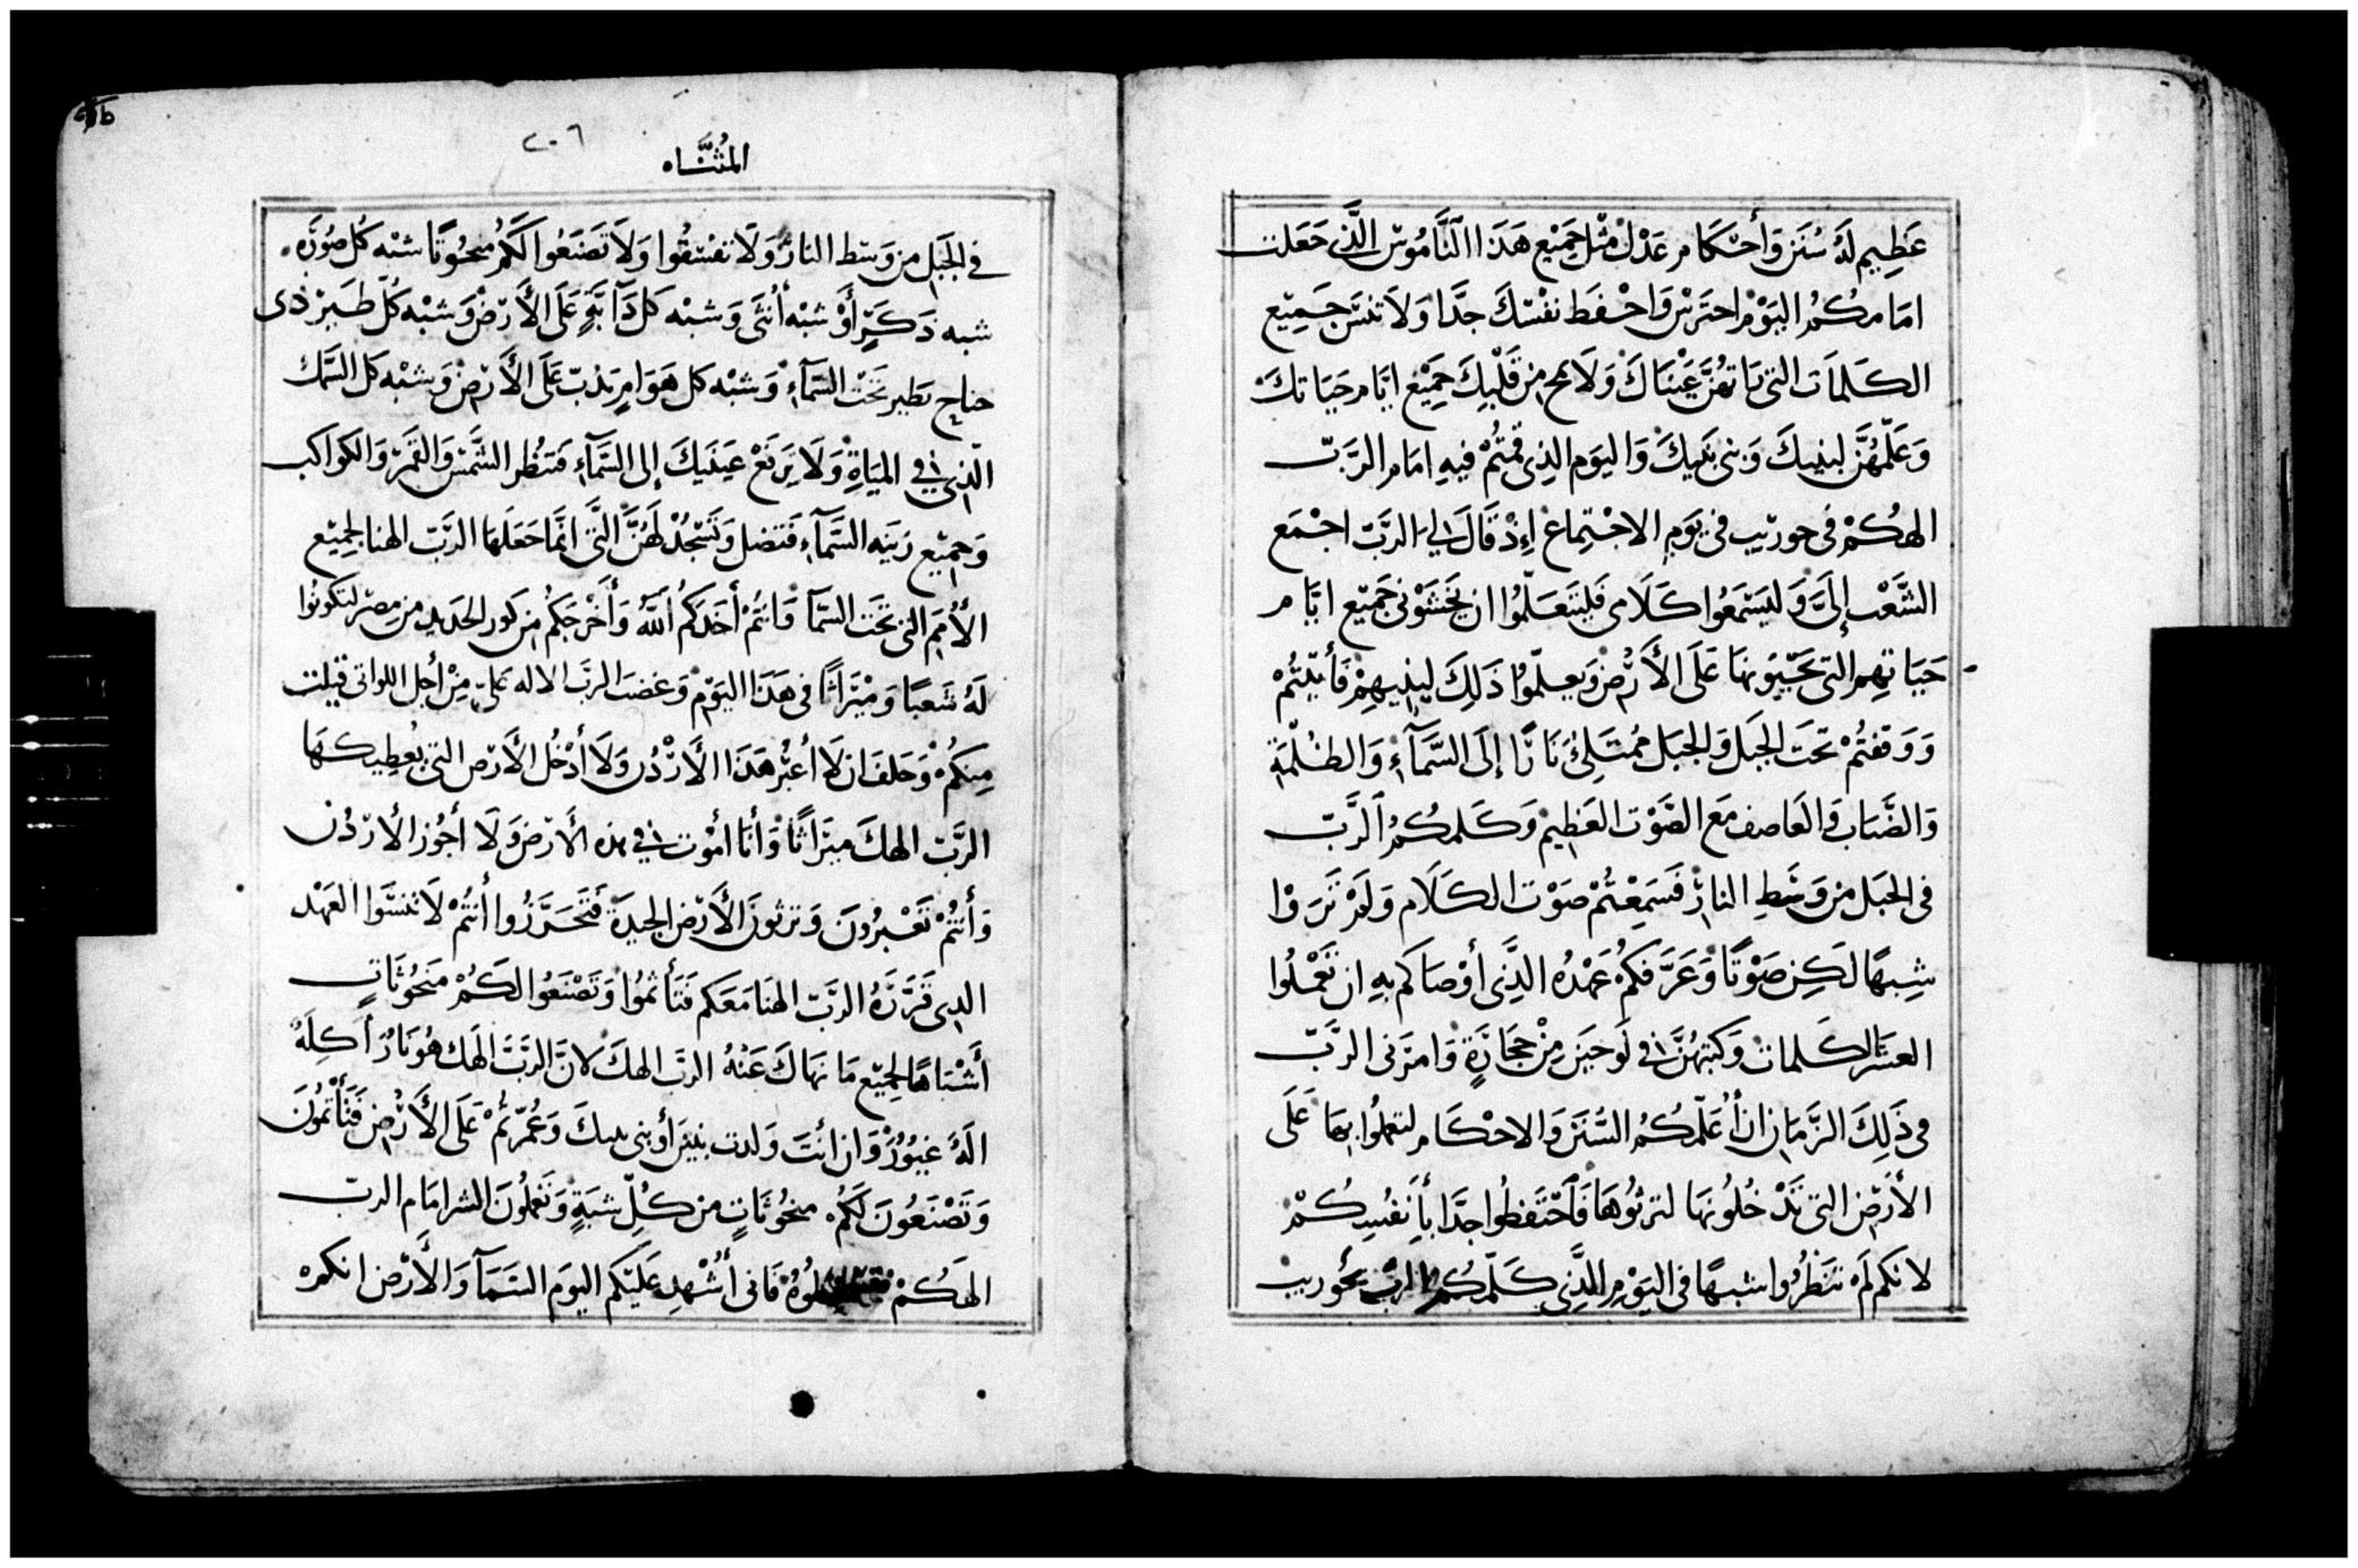 عَظِيم لَهُ سُنَن وَأَحكَام عَدْل مثْل جَمِيْع هَذَا النَّامُوس الَّذِى جَعَلت
امَامكُم اليَوْم احتَرس وَاحْفَط نفْسَكَ جدَّا وَلَا تنسَ جَمِيْع
الكَلمَات التى عَيْنَاكَ وَلَا من قَلْبِكَ جَمِيْع ايَّام حَيَاتكَ
وَعَلّمْهُنَّ لبنيكَ وَبنى بَنِيكَ وَاليَوم الذِى قمتُمْ فيهِ امَام الرَّبّ
الهكُمْ فى حوريب فى يَومِ الاجْتِماع إِذْ قَالَ لِى الرَّبّ اجْمَع
الشَّعْب إِلىَّ وَليَسْمَعُوا كَلَامى فَليَتَعَلَّمُوا ان يَخشَوْنى جَمِيْع ايَّام
حَيَاتهِم التى يَحْيَونهَا عَلَى الأَرْض وَيعلّموُا ذَلِكَ لِبنِيهِمْ فَأَتيْتُمْ
وَوَقفتُمْ تحَت الجَبل وَالجبَل مُمْتَلِئُ نَارًا إِلَى السَّمَآءِ وَالظلْمَة
وَالضَّبَاب وَالعَاصف مَع الصَّوْت العَظِيم وَكَلمكُمُ الرَّبّ
فى الجبَل من وَسَطِ النار فَسَمِعْتُمْ صَوْت الكَلَام وَلَمْ تَرَوْا
شِبهًا لَكِن صَوْتًا وَعَرَّفكُمْ عَهْدُه الَّذِى أَوْصَاكم بهِ ان تَعْمَلُوا
العشر الكَلمات وَكَتبهُنَّ فى لَوحَين مِنْ حجَارَةٍ وَامَرَنى الرَّبّ
فى ذَلِكَ الزَّمَان ان أُعَلّمكُمُ السُّنَن وَالاحْكَام لتعملُوا بهَا عَلَى
الأَرض التى تَدْخُلُونهَا لترثُوهَا فَاحْتَفظُوا جدَّا بأَنفُسِكُمْ
لانكم لَمْ تنَظُرُوا شبهًا فى اليَوْمِ الَّذِى كَلّمكُم الرب بحُوريب
المُثنَّاه
٢٠٦
فى الجَبل من وَسَط النار وَلَا تفسُقُوا وَلَا تَصْنَعُوا لَكُمْ منحُوتًا شبْه كُل صُوْرَه
شبه ذَكَرٍ أَوْ شبْه أُنثَى وَشبْه كَل دَآبَّةٍ عَلَى الأَرْض وَشبْه كُلّ طَيرْ ذى
جناح يَطير تَحْت السَّمَآءِ وَشبْه كل هَوَامٍ يَدْبّ عَلَى الأَرْض وَشبْه كَل السَّمَك
الّذِى فى المِيَاةِ وَلَا تَرفَعْ عَينَيكَ إِلى السَّمَآءِ فَتنظُر الشَّمْسْ وَالقَمَرْ وَالكوَاكب
وَجمِيْع زينَه السَّمَآءِ فَتضل وَتَسْجُدْ لَهُنَّ التَّى انَّمَا جَعَلَهَا الرَّبّ الهنا لجَمِيْع
الأُمَم التى تَحَت السَّمآ وَانتُمْ أَخَذَكُم اللّهُ وَأَخْرَجَكُم مِن كُور الحَديدِ من مِصْر لتكونُوا
لَهُ شَعبًا وَمِيْرَاثًا فى هَذَا اليَوْم وَغضبَ الرَبّ الاله عَلىّ مِنْ أَجل اللواتى قيلت
مِنكُمْ وَحَلفَ ان لَا أَعبُر هَذَا الأَرْدُن وَلَا أَدْخُل الأَرْض التى يُعطِيكهَا
الرَّبّ الهكَ ميرَاثًا وَأنَا أمُوْت فى هذه الأَرْض وَلَا أَجُوز الأرْدُن
وَأَنتُمْ تَعْبرُونَ وَترثونَ الأَرْض الجيدَة فَتَحَرَّزُوا أَنتُمْ لَا تنسَوا العَهْد
الذِى قَرَّرَهُ الرَّبّ الهنا مَعَكم فتَأثمُوا وَتَصْنَعُوا لَكُمْ مَنحُوتَاتٍ
أَشْبَاهًا لجَمِيْع مَا نهَاكَ عَنْهُ الرَبّ الهكَ لانَّ الرَّبَّ الَهك هُوَ نَارٌ أَكِلَهُ
الَهٌ غيُورٌ وَان أنتَ وَلدت بنينَ أَوبنى بنيكَ وَعُمّرتُمْ عَلَى الأَرْض فَتَأْثمُونَ
وَتَصْنَعُونَ لَكُم منحُوتَاتٍ من كُلِّ شبَةٍ وَتَعملُونَ الشر امَام الربّ
الهَكُمْ فَانى أُشْهدِ عَلَيكم اليَومَ السَمَآ وَالأَرْض انكم